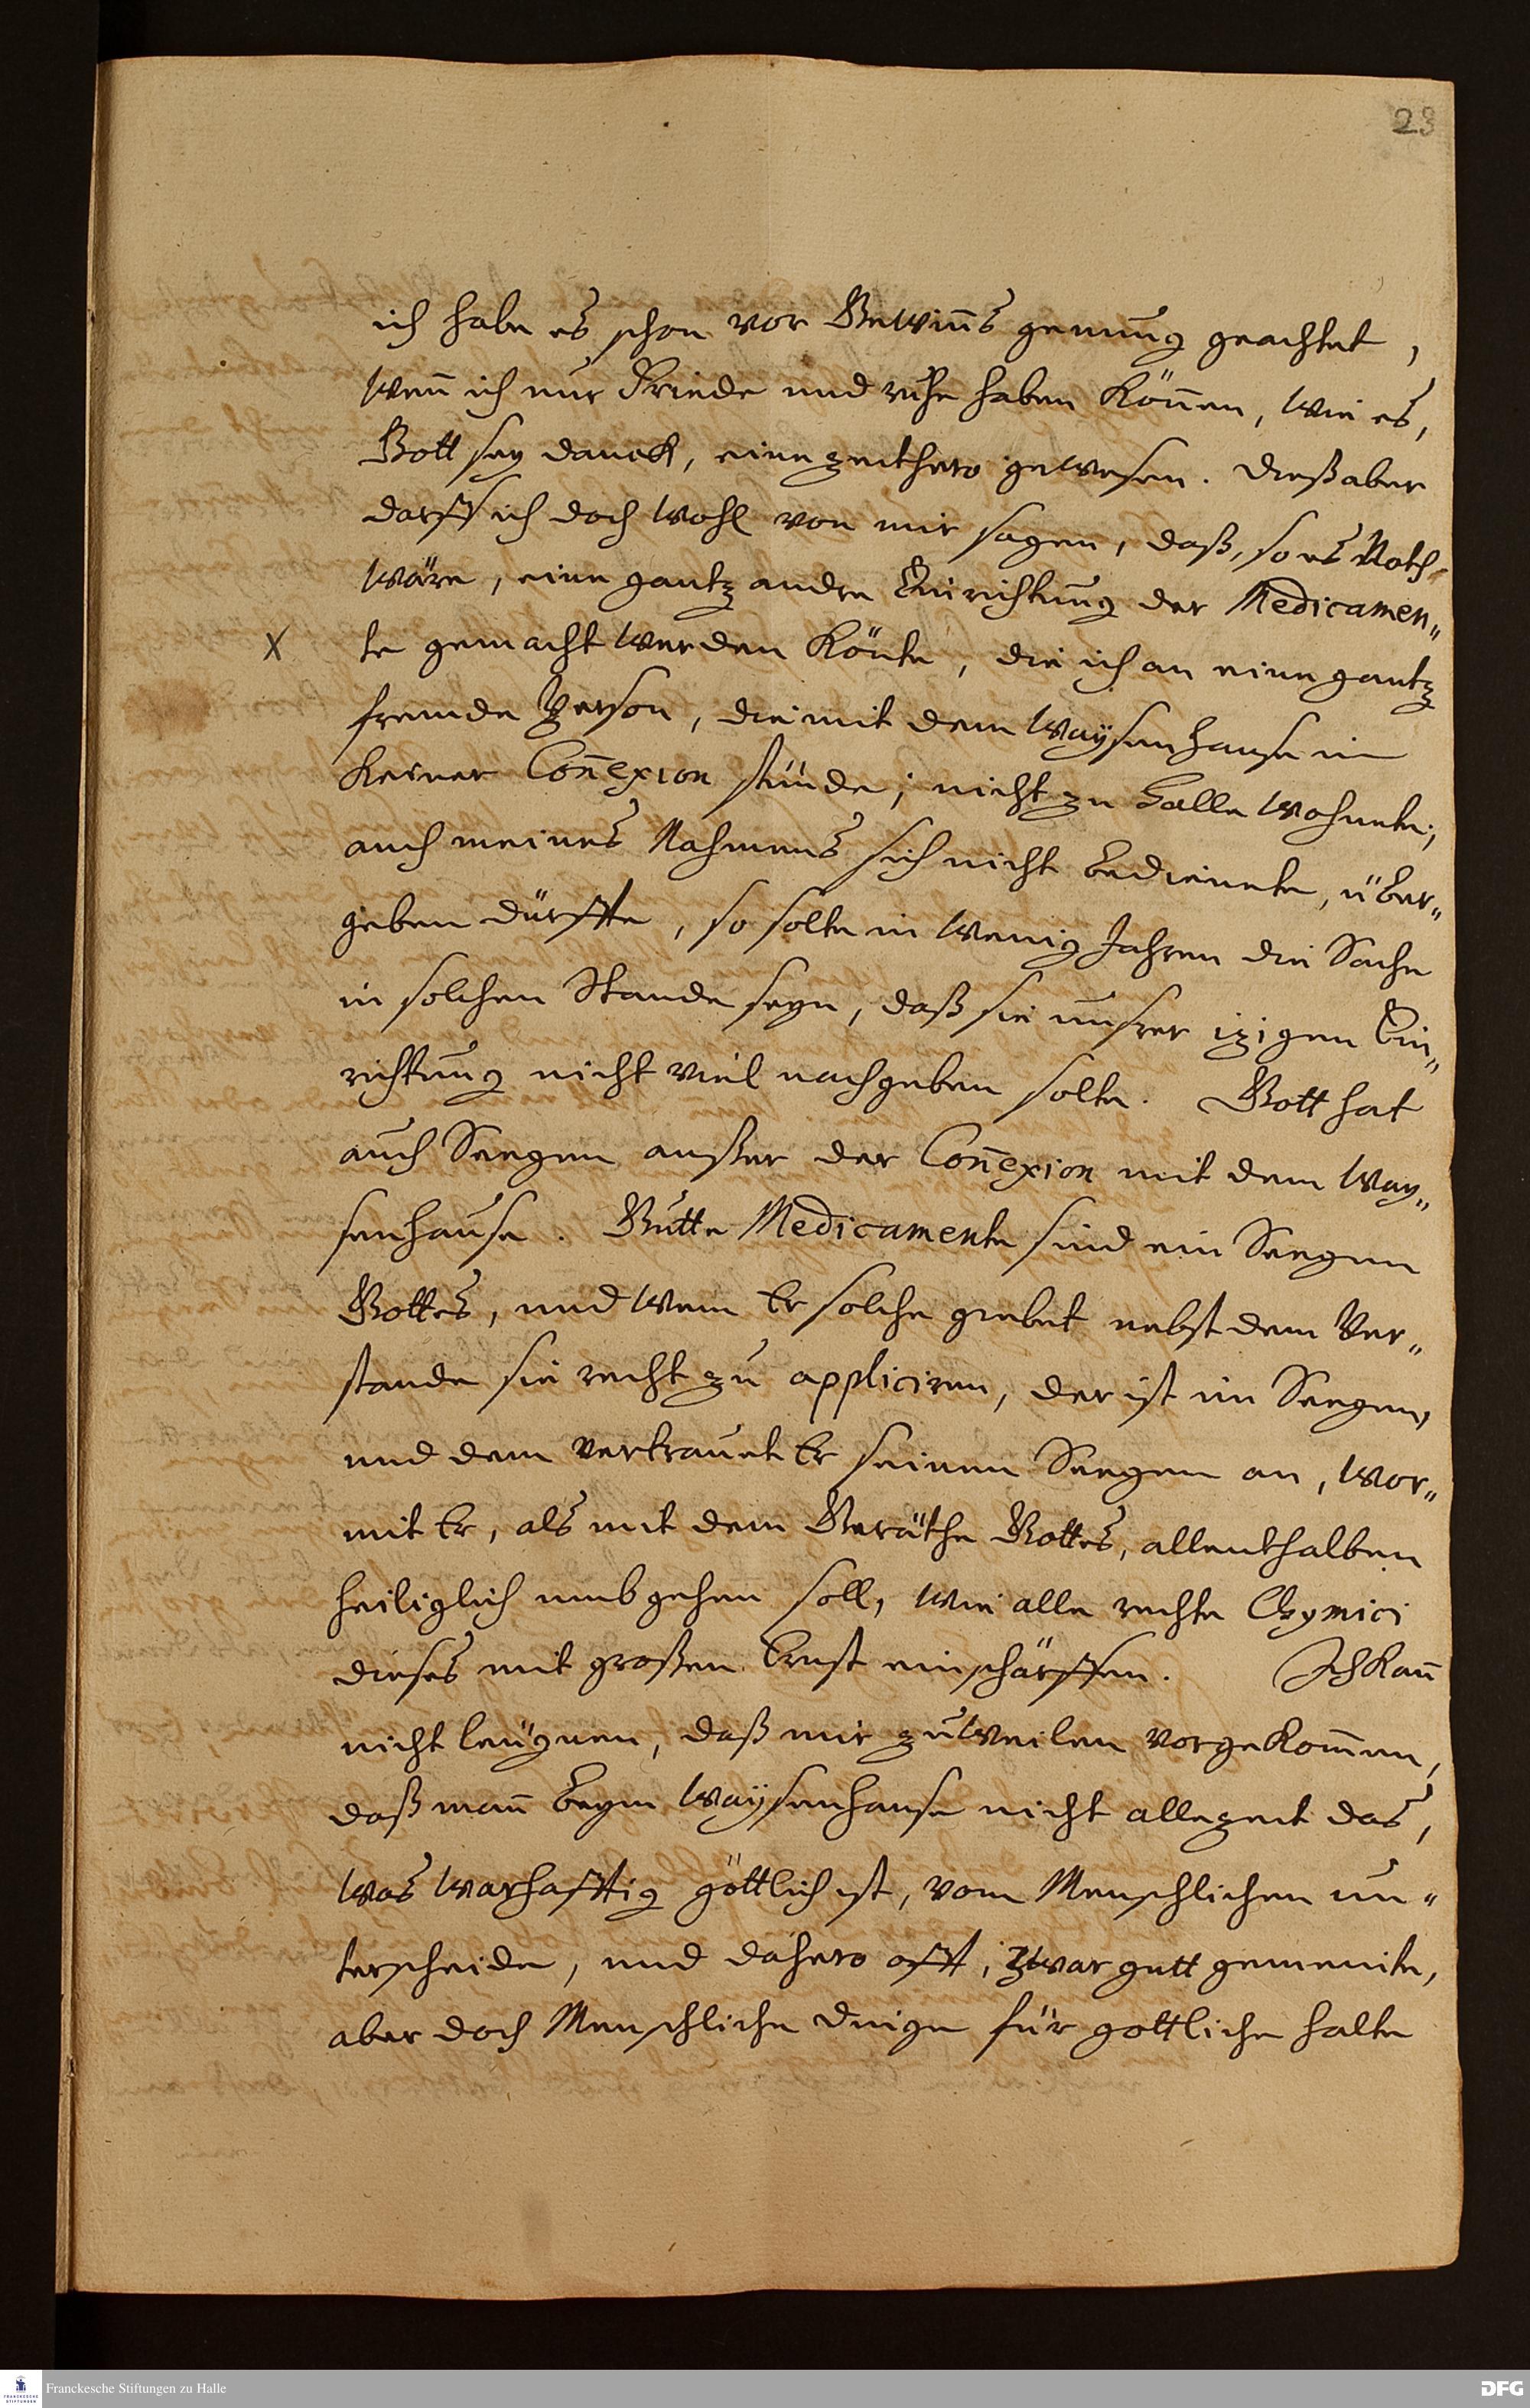 23
ich habe es schon vor Gewiñs genung geachtet,
weñ ich nur Friede und ruhe haben köñen, wie es,
Gott sey danck, eine zeithero gewesen. Dieß aber
darff ich doch wohl von mir sagen, daß, so es Noth-
wäre, eine gantz andre Einrichtung der Medicamen„
X te gemacht werden könte, die ich an eine gantz
fremde Person, die mit dem Waÿsenhause in
keiner Coñexion stünde; nicht zu Halle wohnete;
auch meines Nahmens sich nicht bedienete, über„
geben dürffte, so solte in wenig Jahren die Sache
in solchen Stande seyn, daß sie unsrer izigen Ein„
richtung nicht viel nachgeben solte. Gott hat
auch Seegen außer der Coñexion mit dem Way„
senhause. Gutte Medicamente sind ein Seegen
Gottes, und wem Er solche giebet nebst dem Ver„
stande sie recht zu appliciren, der ist im Seegen,
und dem vertrauet Er seinen Seegen an, wor„
mit Er, als mit dem Geräthe Gottes, allenthalben
heiliglich umbgehen soll, wie alle rechte Chymici
dieses mit großen Ernst einschärffen. Ich kañ
nicht leugnen, daß mir zuweilen vorgekom̃en,
daß mañ beym Waÿsenhause nicht allezeit das,
was warhafftig göttlich ist, vom Menschlichen un„
terscheide, und dahero offt, zwar gutt gemeinte,
aber doch Menschliche dinge für gottliche halte
Franckesche Stiftungen zu Halle
FRANCKESCHE STIFTUNGEN
DFG